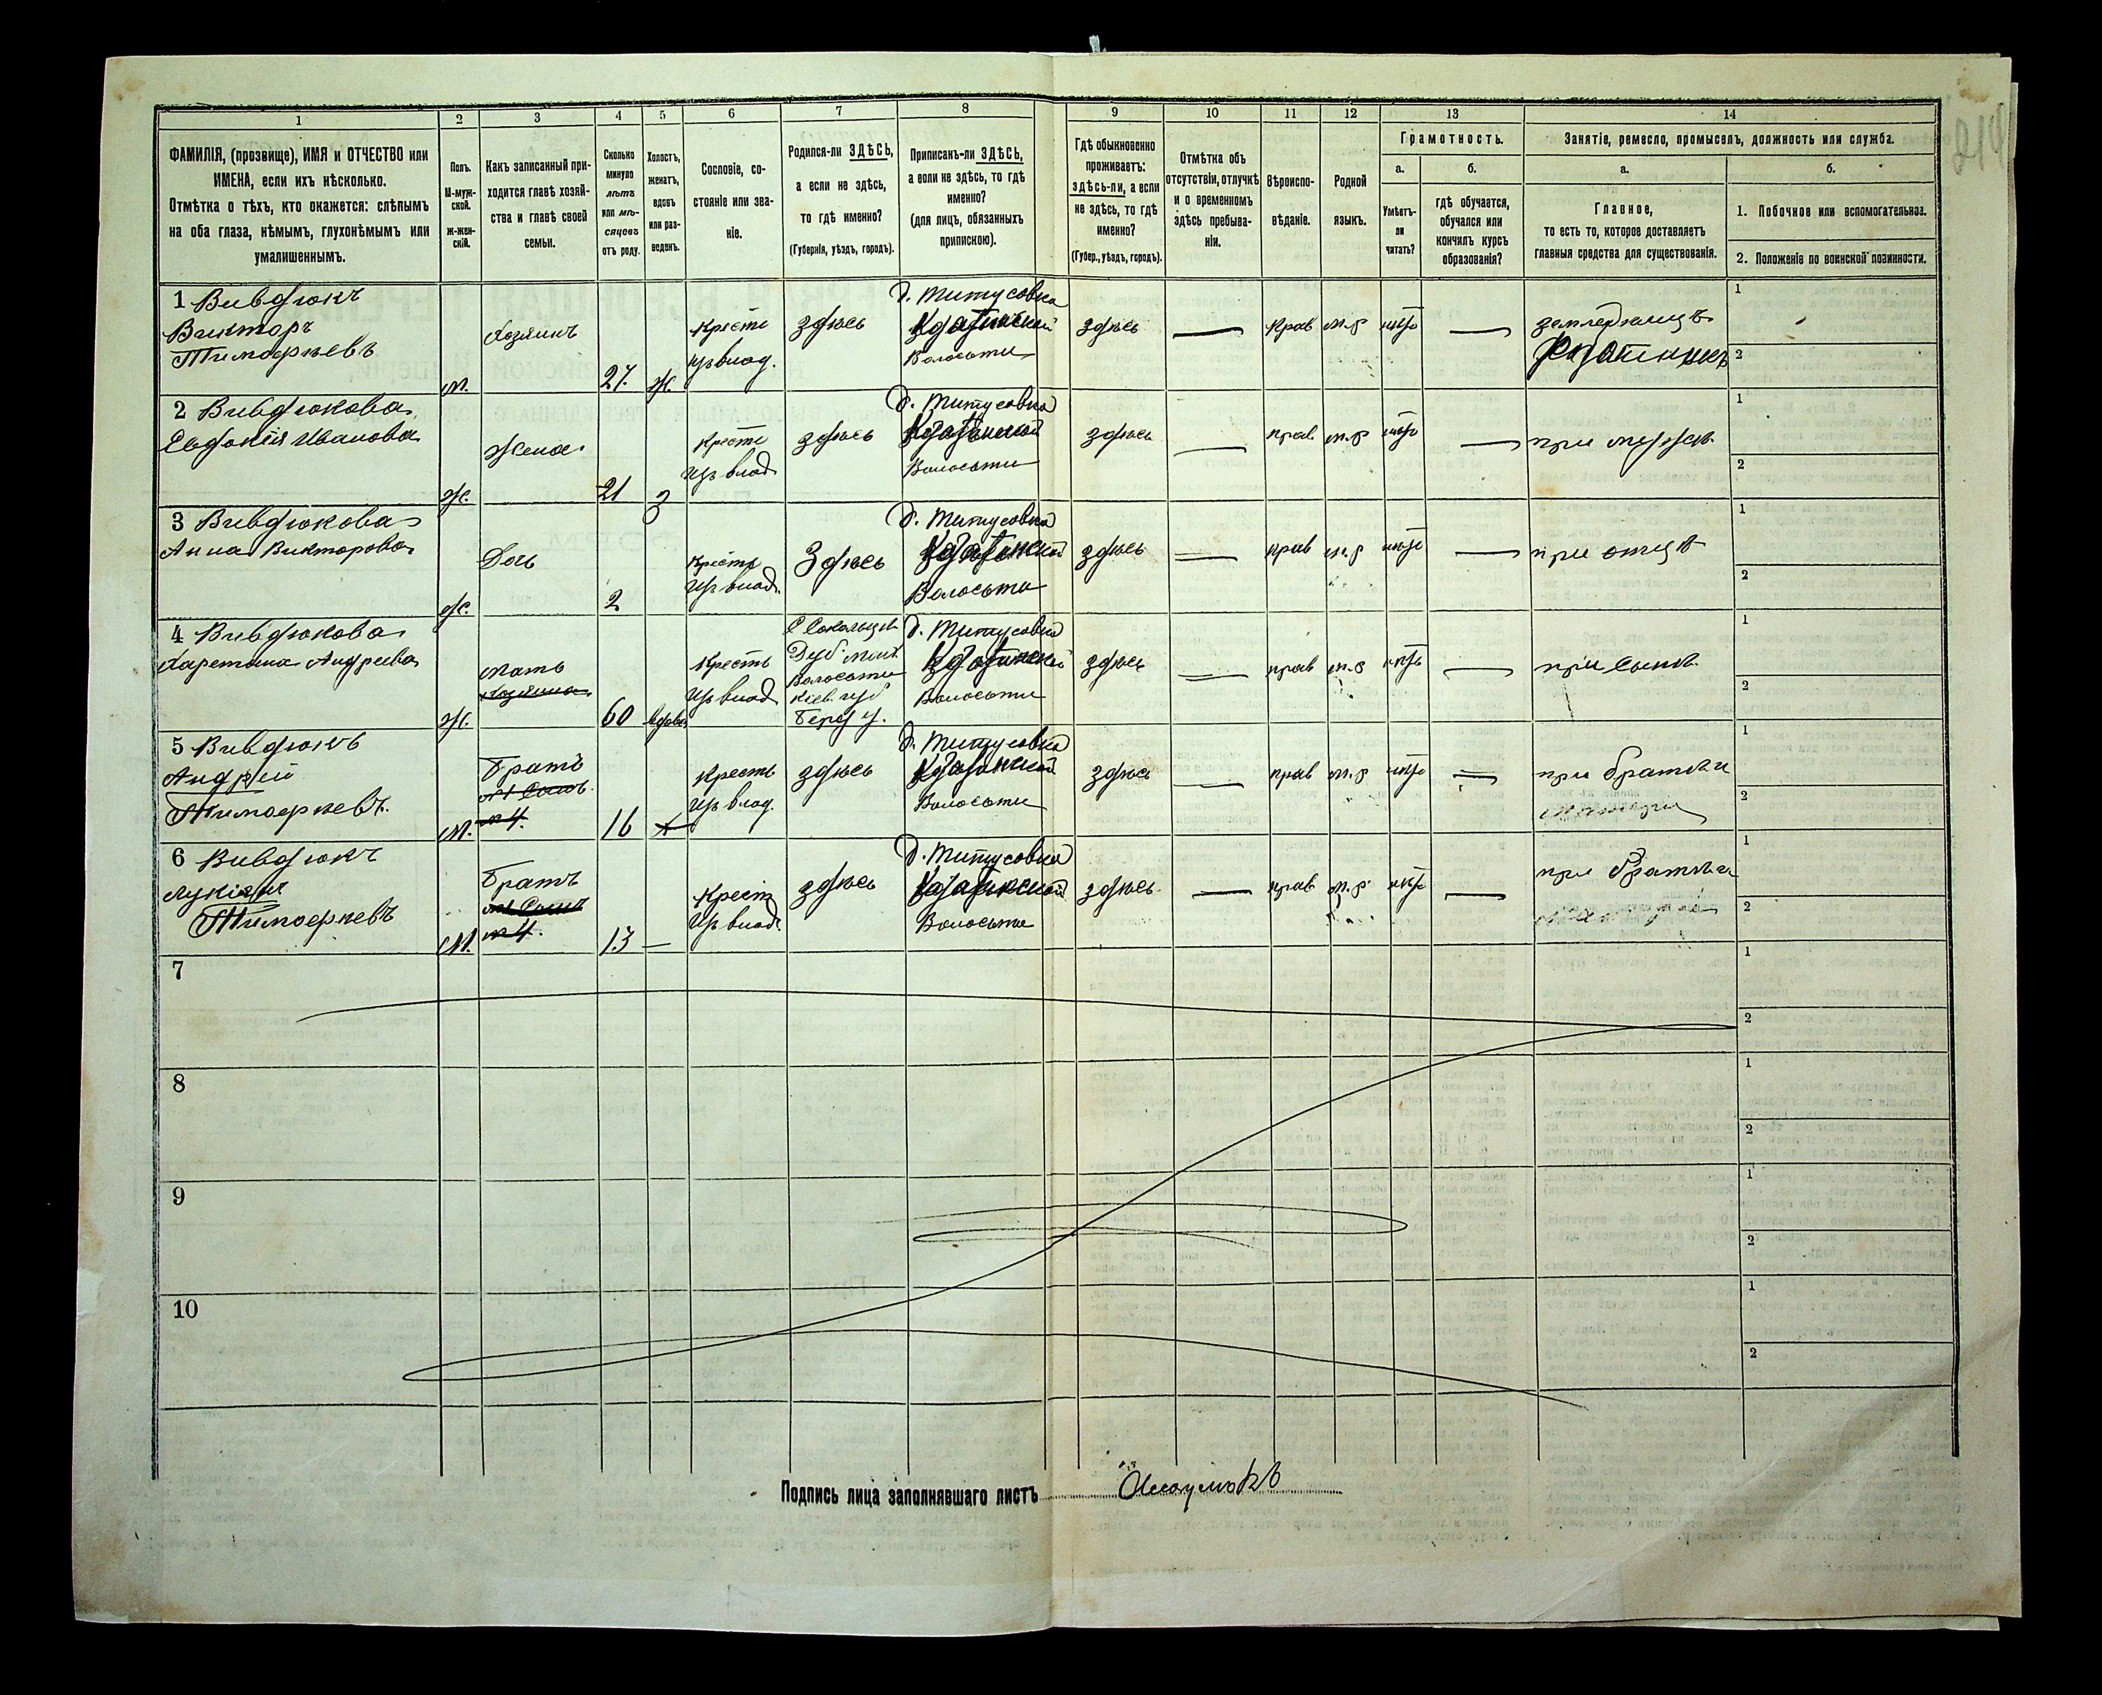 1
2
3
4
5
6
7
8
9
10
11
12
13
14
ФАМИЛІЯ, (прозвище), ИМЯ и ОТЧЕСТВО или
ИМЕНА, если ихъ нѣсколько.
Отмѣтка о тѣхъ, кто окажется: слѣпымъ
на оба глаза, нѣмымъ, глухонѣмымъ или
умалишеннымъ.
Полъ.
М-муж-
ской.
ж-жен-
скій.
Какъ записанный при-
ходится главѣ хозяй-
ства и главѣ своей
семьи.
Сколько
минуло
лѣтъ
или мѣ-
сяцевъ
отъ роду.
Холостъ,
женатъ,
вдовъ
или раз-
веденъ.
Сословіе, со-
стояніе или зва-
ніе.
Родился-ли ЗДѢСЬ,
а если не здѣсь,
то гдѣ именно?
(Губернія, уѣздъ, городъ).
Приписанъ-ли ЗДѢСЬ,
а если не здѣсь, то гдѣ
именно?
(для лицъ, обязанныхъ
припискою).
Гдѣ обыкновенно
проживаетъ:
здѣсь-ли, а если
не здѣсь, то гдѣ
именно?
(Губер., уѣздъ, городъ).
Отмѣтка объ
отсутствіи, отлучкѣ
и о временномъ
здѣсь пребыва-
ніи.
Вѣроиспо-
вѣданіе.
Родной
языкъ.
Грамотность.
а.
Умѣетъ-
ли
читать?
б.
гдѣ обучается,
обучался или
кончилъ курсъ
образованія?
Занятіе, ремесло, промыселъ, должность или служба.
а.
Главное,
то есть то, которое доставляетъ
главныя средства для существованія.
б.
1. Побочное или вспомогательное.
2. Положеніе по воинской повинности.
1 Вивдюкъ
Викторъ
Тимофѣевъ
м.
Хозяинъ
27.
ж.
Крестъ
изъ влад.
здѣсь
д. Титусовка
Волости
здѣсь
прав
м.р
нѣтъ
земледѣлецъ
1
2
2 Вивдюкова
Евдокія Иванова
ж.
Жена
21
з
Крестъ
изъ влад
здѣсь
д. Титусовка
Волости
здѣсь
прав.
м.р
нѣтъ
при мужѣ
1
2
3 Вивдюкова
Анна Викторова
ж.
Дочь
2
Крестъ
изъ влад.
Здѣсь
д. Титусовка
Волости
здѣсь
прав
м.р
нѣтъ
при отцѣ
1
2
4 Вивдюкова
Харетина Андреева
ж.
мать
хозяина
60
вдова
Крестъ
изъ влад
Волости
Кіев. губ
д. Титусовка
Волости
здѣсь
прав
м.р
нѣтъ
при сынѣ
1
2
5 Вивдюкъ
Андрей
Тимофѣевъ.
м.
Братъ
№ 4.
16
х
Крестъ
изъ влад.
здѣсь
д. Титусовка
Волости
здѣсь
прав
м.р
нѣтъ
при братѣ и
матери
1
2
6 Вивдюкъ
Лукіян
Тимофѣевъ
м.
Братъ
№ 4.
13
Крест
изъ влад.
здѣсь
д. Титусовка
Волости
здѣсь
прав
м.р.
нѣтъ
при братѣ и
1
2
7
1
2
8
1
2
9
1
2
10
1
2
Подпись лица заполнявшаго листъ